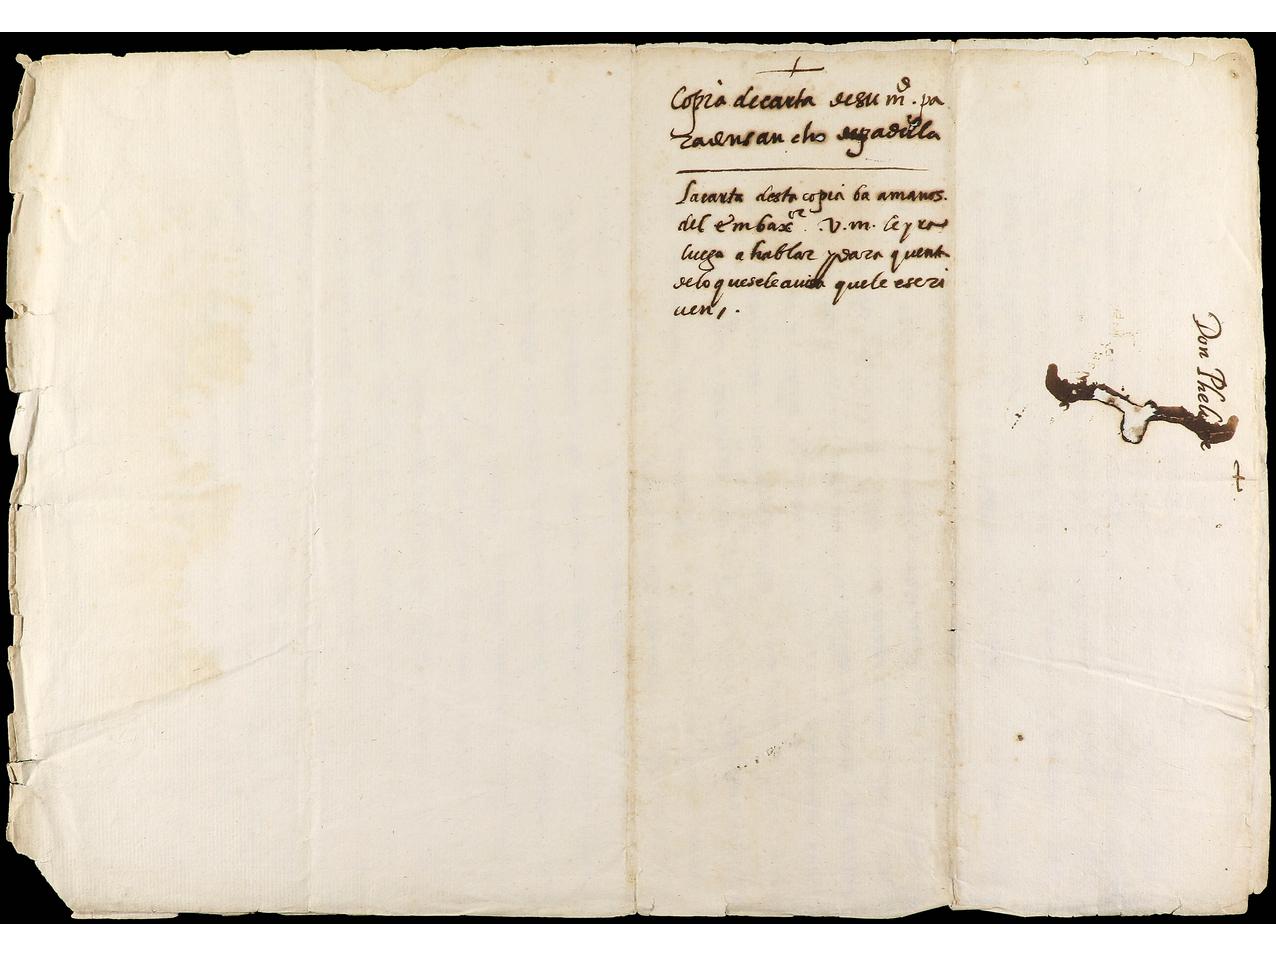 Copia de carta de su m.d pa
ra don sancho de padilla
La carta desta copia ba a manos
del embaxor. V.m. le yra
luego a hablar y dara quenta
de lo que se le avisa que le escri
uen.
Don Phelipe